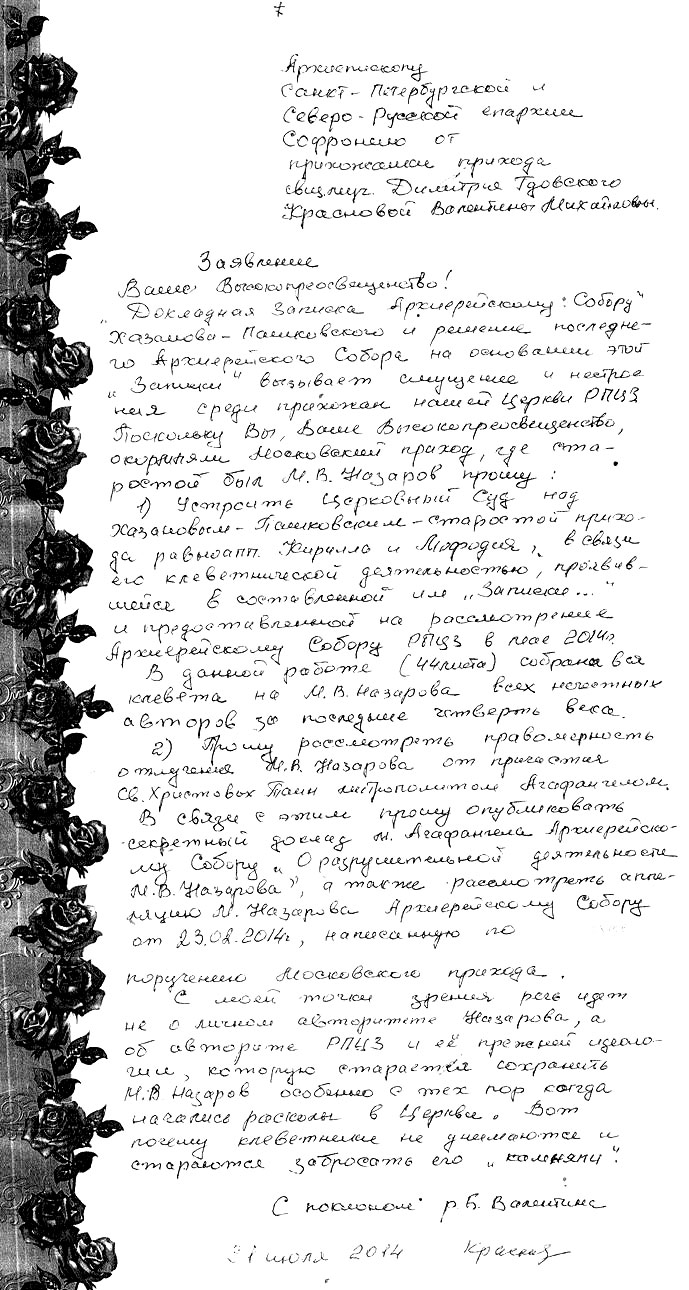 Архиепископу
Санкт-Петербургской и
Северо-Русской епархии
Софронию от
прихожанки прихода
свщмуч. Димитрия Гдовского
Красновой Валентины Михайловны.
Заявление
Ваше Высокопреосвященство!
„Докладная Записка Архиерейскому Собору"
Хазанова-Пашковского и решение последне-
го Архиерейского Собора на основании этой
„Записки" вызывает смущение и нестрое
ния среди прихожан нашей Церкви РПЦЗ
Поскольку Вы, Ваше Высокопреосвященство,
окормляли Московский приход, где ста-
ростой был М.В. Назаров прошу:
1) Устроить Церковный Суд над
Хазановым-Пашковским-старостой прихо-
да равноапп. Кирилла и Мефодия, в связи
его клеветнической деятельностью, проявив-
шейся в составленной им „Записке..."
и предоставленной на рассмотрение
Архиерейскому Собору РПЦЗ в мае 2014г.
В данной работе (44листа) собрана вся
клевета на М.В. Назарова всех нечестных
авторов за последние четверть века.
2) Прошу рассмотреть правомерность
отлучения М.В. Назарова от причастия
Св. Христовых Таин митрополитом Агафангелом.
В связи с этим прошу опубликовать
секретный доклад м. Агафангела Архиерейско-
му Собору „О разрушительной деятельности
М.В. Назарова", а также рассмотреть аппе-
ляцию М. Назарова Архиерейскому Собору
от 23.02.2014г, написанную по
поручению Московского прихода.
С моей точки зрения речь идет
не о личном авторитете Назарова, а
об авторите РПЦЗ и её прежней идеоло-
гии, которую старается сохранить
М.В Назаров особенно с тех пор когда
начались расколы в Церкви. Вот
почему клеветники не унимаются и
стараются забросать его „камнями".
С поклоном р.Б. Валентина
31 июля 2014